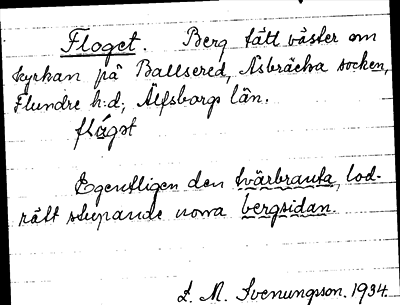 Floget. Berg tätt väster om
kyrkan på Ballsered, Åsbräcka socken,
Flundre h:d, Älfsborgs län.
flåget
Egentligen den tvärbranta, lod-
rätt stupande norra bergsidan.
L. M. Svenungsson. 1934.